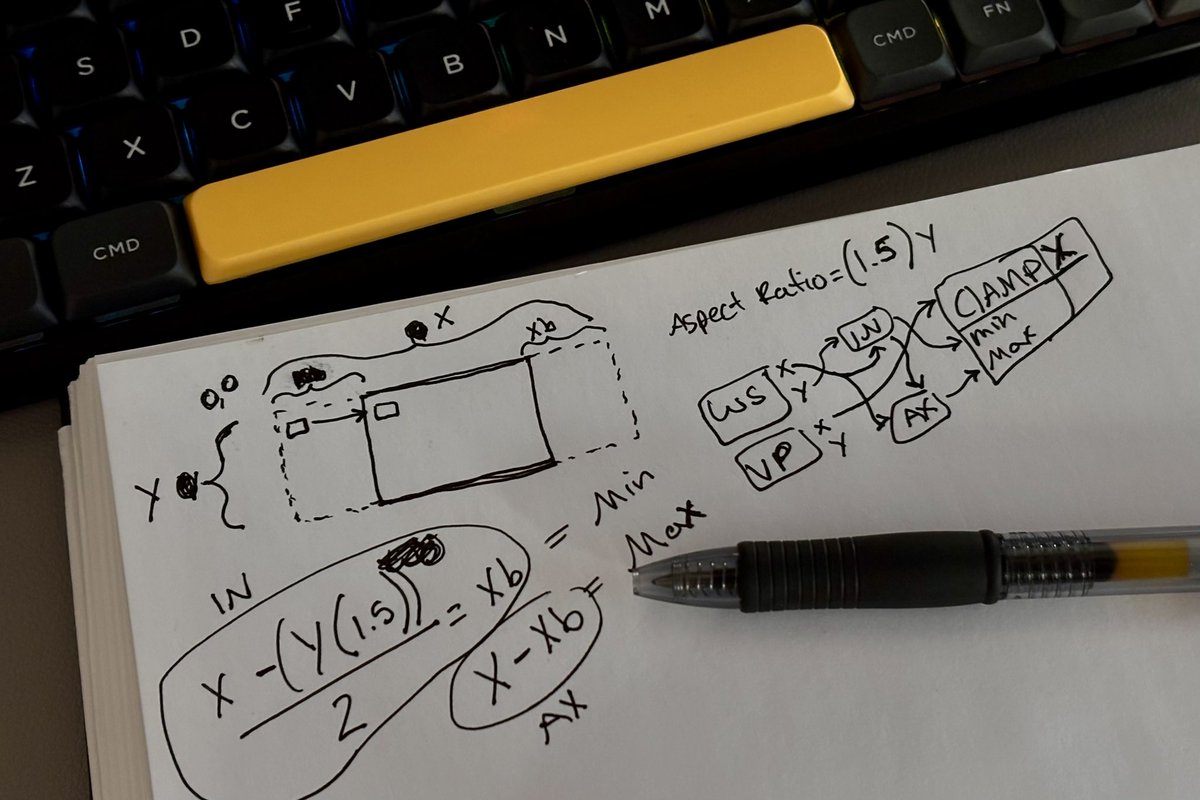 S D F
M
CMD
FN
Z X C V B N
CMD
Aspect Ratio = (1.5) Y
X
Xb
0,0
Y
IN
WS
X
Y
VP
X
Y
AX
CLAMP X
min
Max
IN
X - (Y(1.5)) = Xb = Min
2
X - Xb = Max
AX